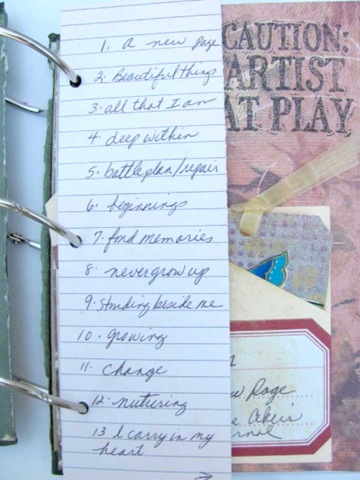 1. A new page
2. Beautiful things
3. all that I am
4. deep within
5. battleplan/repair
6. beginnings
7. fond memories
8. never grow up
9. standing beside me
10. growing
11. change
12. nuturing
13 I carry in my
heart
CAUTION:
ARTIST
AT PLAY
Page